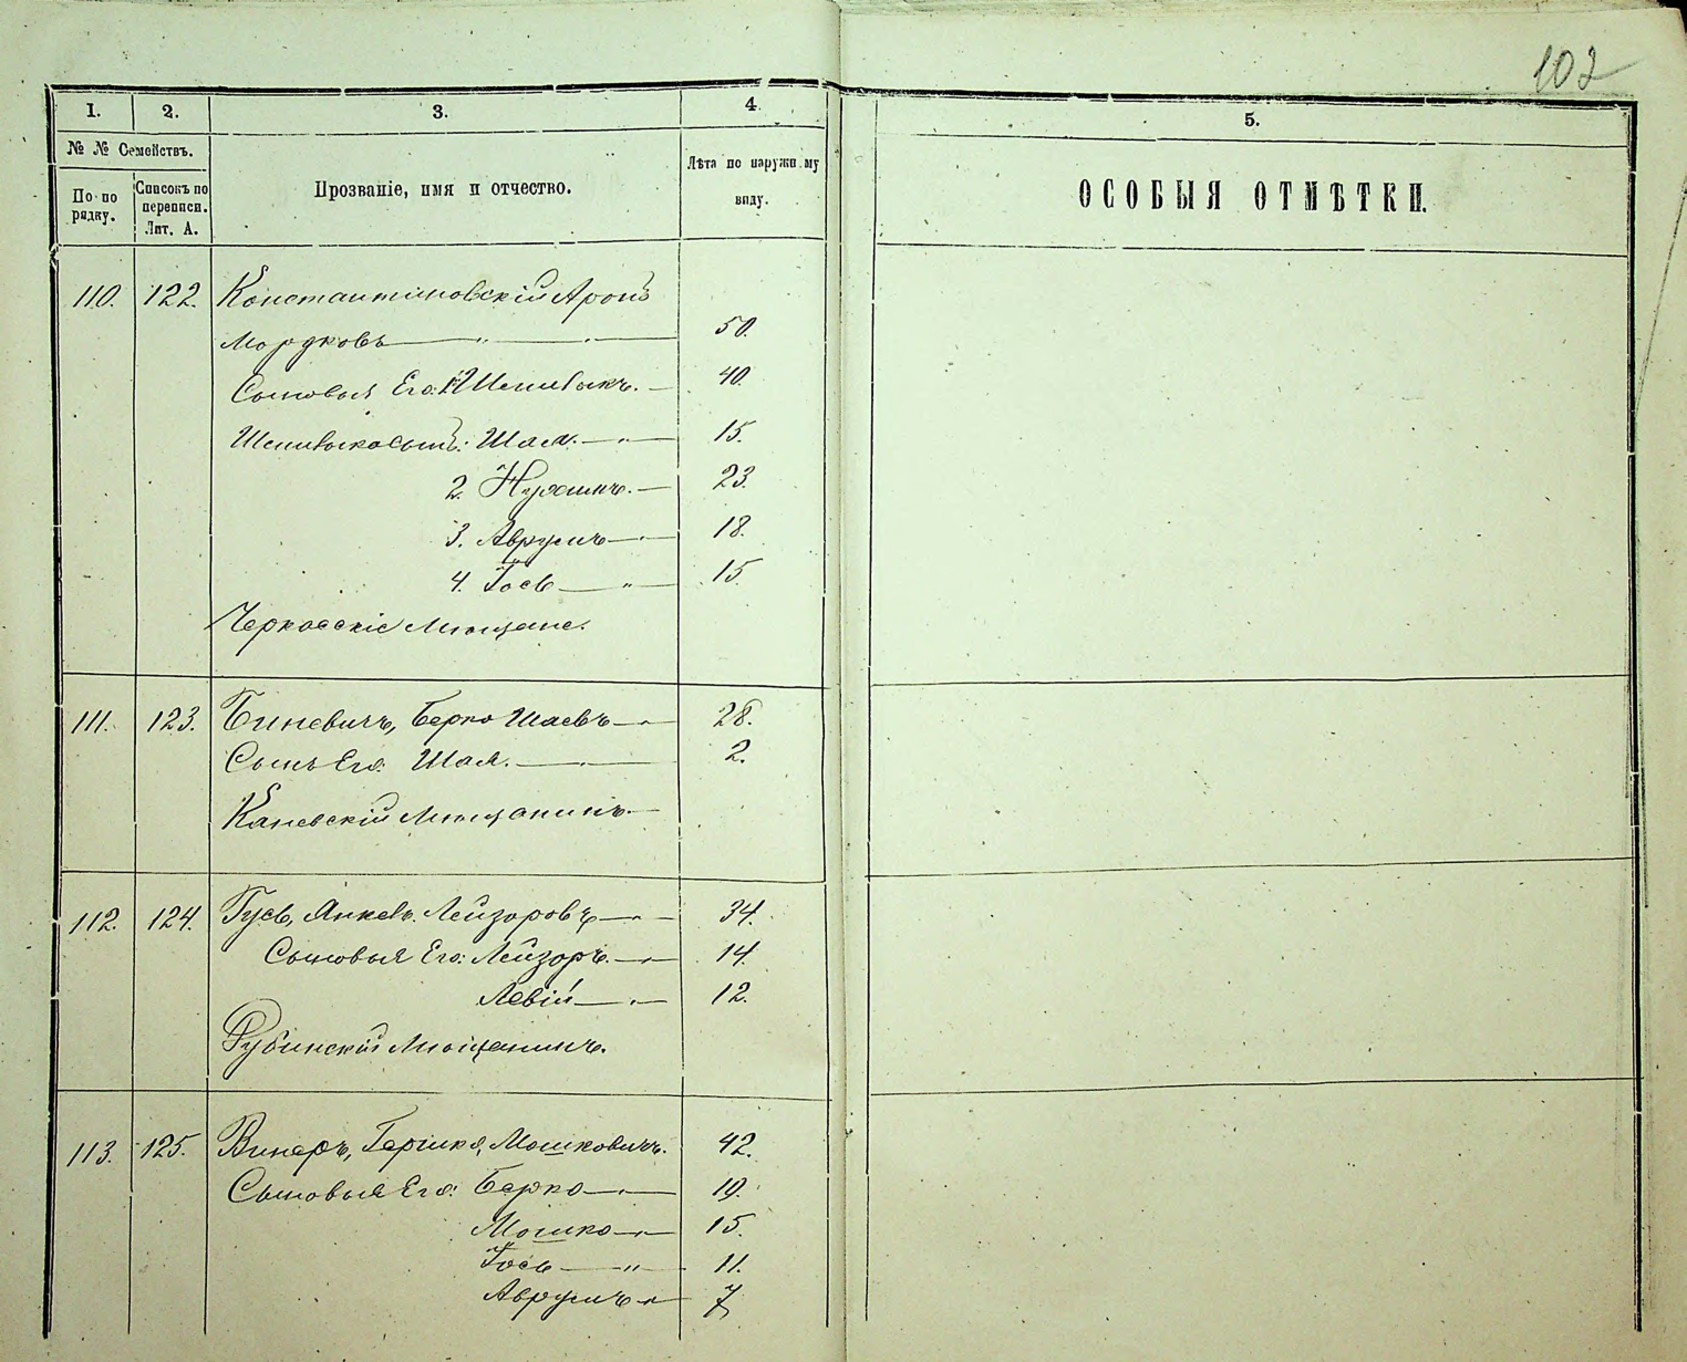 102
1. 2. 3. 4. 5.
№ № Семействъ.
По по рядку.
Списокъ по переписи. Лит. А.
Прозваніе, имя и отчество.
Лѣта по наружн му виду.
ОСОБЫЯ ОТМѢТКИ.
110. 122. Константиновскій Аронъ
Мордковъ 50.
Сыновья Его: 1. 40.
сынъ: Шая. 15.
2. Нухимъ. 23.
3. Аврумъ 18.
4. Іось 15.
Черкасскіе Мѣщане.
111. 123. Биневичъ, Берко Шаевъ 28.
Сынъ Его: Шая. 2.
Каневскій Мѣщанинъ.
112. 124. Гусь, Янкель Лейзоровъ 34.
Сыновья Его: Лейзоръ. 14.
Левій 12.
Мѣщанинъ.
113. 125. Винеръ, Гершко, Мошковичъ. 42.
Сыновья Его: Берко 19.
Мошко 15.
Іось 11.
Аврумъ 7